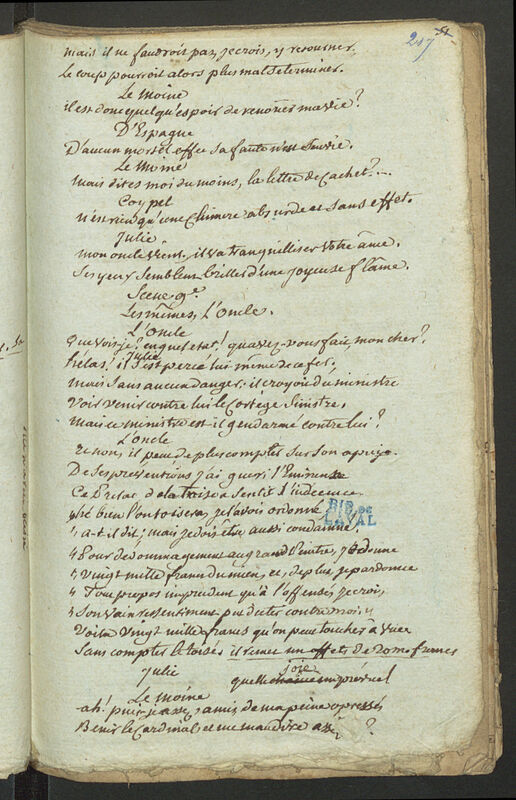 217
mais il ne faudroit pas, je crois, y retourner.
Le coup pourroit alors plus mal se terminer.
Le Moine
il est donc quelqu'espoir de ma vie?
D'Espagne
D'aucun mortel effet sa faute n'est suivie.
Le Moine
mais dites moi du moins, la lettre de cachet?
Coypel
n'est rien qu'une Chimere absurde et sans effet.
Julie
mon oncle vient. il va tranquilliser votre âme.
Ses yeux semblent briller d'une joyeuse flâme.
Scene 9e.
Les mêmes, L'Oncle.
L'Oncle
Que vois-je? en quel etat! qu'avez-vous fait, mon cher?
Julie
hélas! il s'est percé lui même de ce fer,
mais sans aucun danger. il croyoit du ministre
Voir venir contre lui le Cortège Sinistre.
mais ce ministre est-il gendarmé contre lui?
L'oncle
non, il peut de plus compter sur son appui.
De ses préventions j'ai gueri l'Eminence
Ce Prelat de la sentit l'indécence.
bien l'on toisera, je l'avois ordonné
a-t-il dit; mais je dois être aussi condamné.
Pour dedommagement au grand Peintre, je donne
Vingt mille francs du mien, et, de plus je pardonne
Tout propos imprudent qu'à l'offensé, je crois,
Son vain ressentiment put dicter contre moi.
Voila Vingt mille francs qu'on peut toucher à vue
Sans compter le toisé
BIB DE LAVAL
Julie
quelle joie imprévue!
Le Moine
ah! puis-je assez, amis, de ma peine opressés
Benir le Cardinal, et me maudire assez?